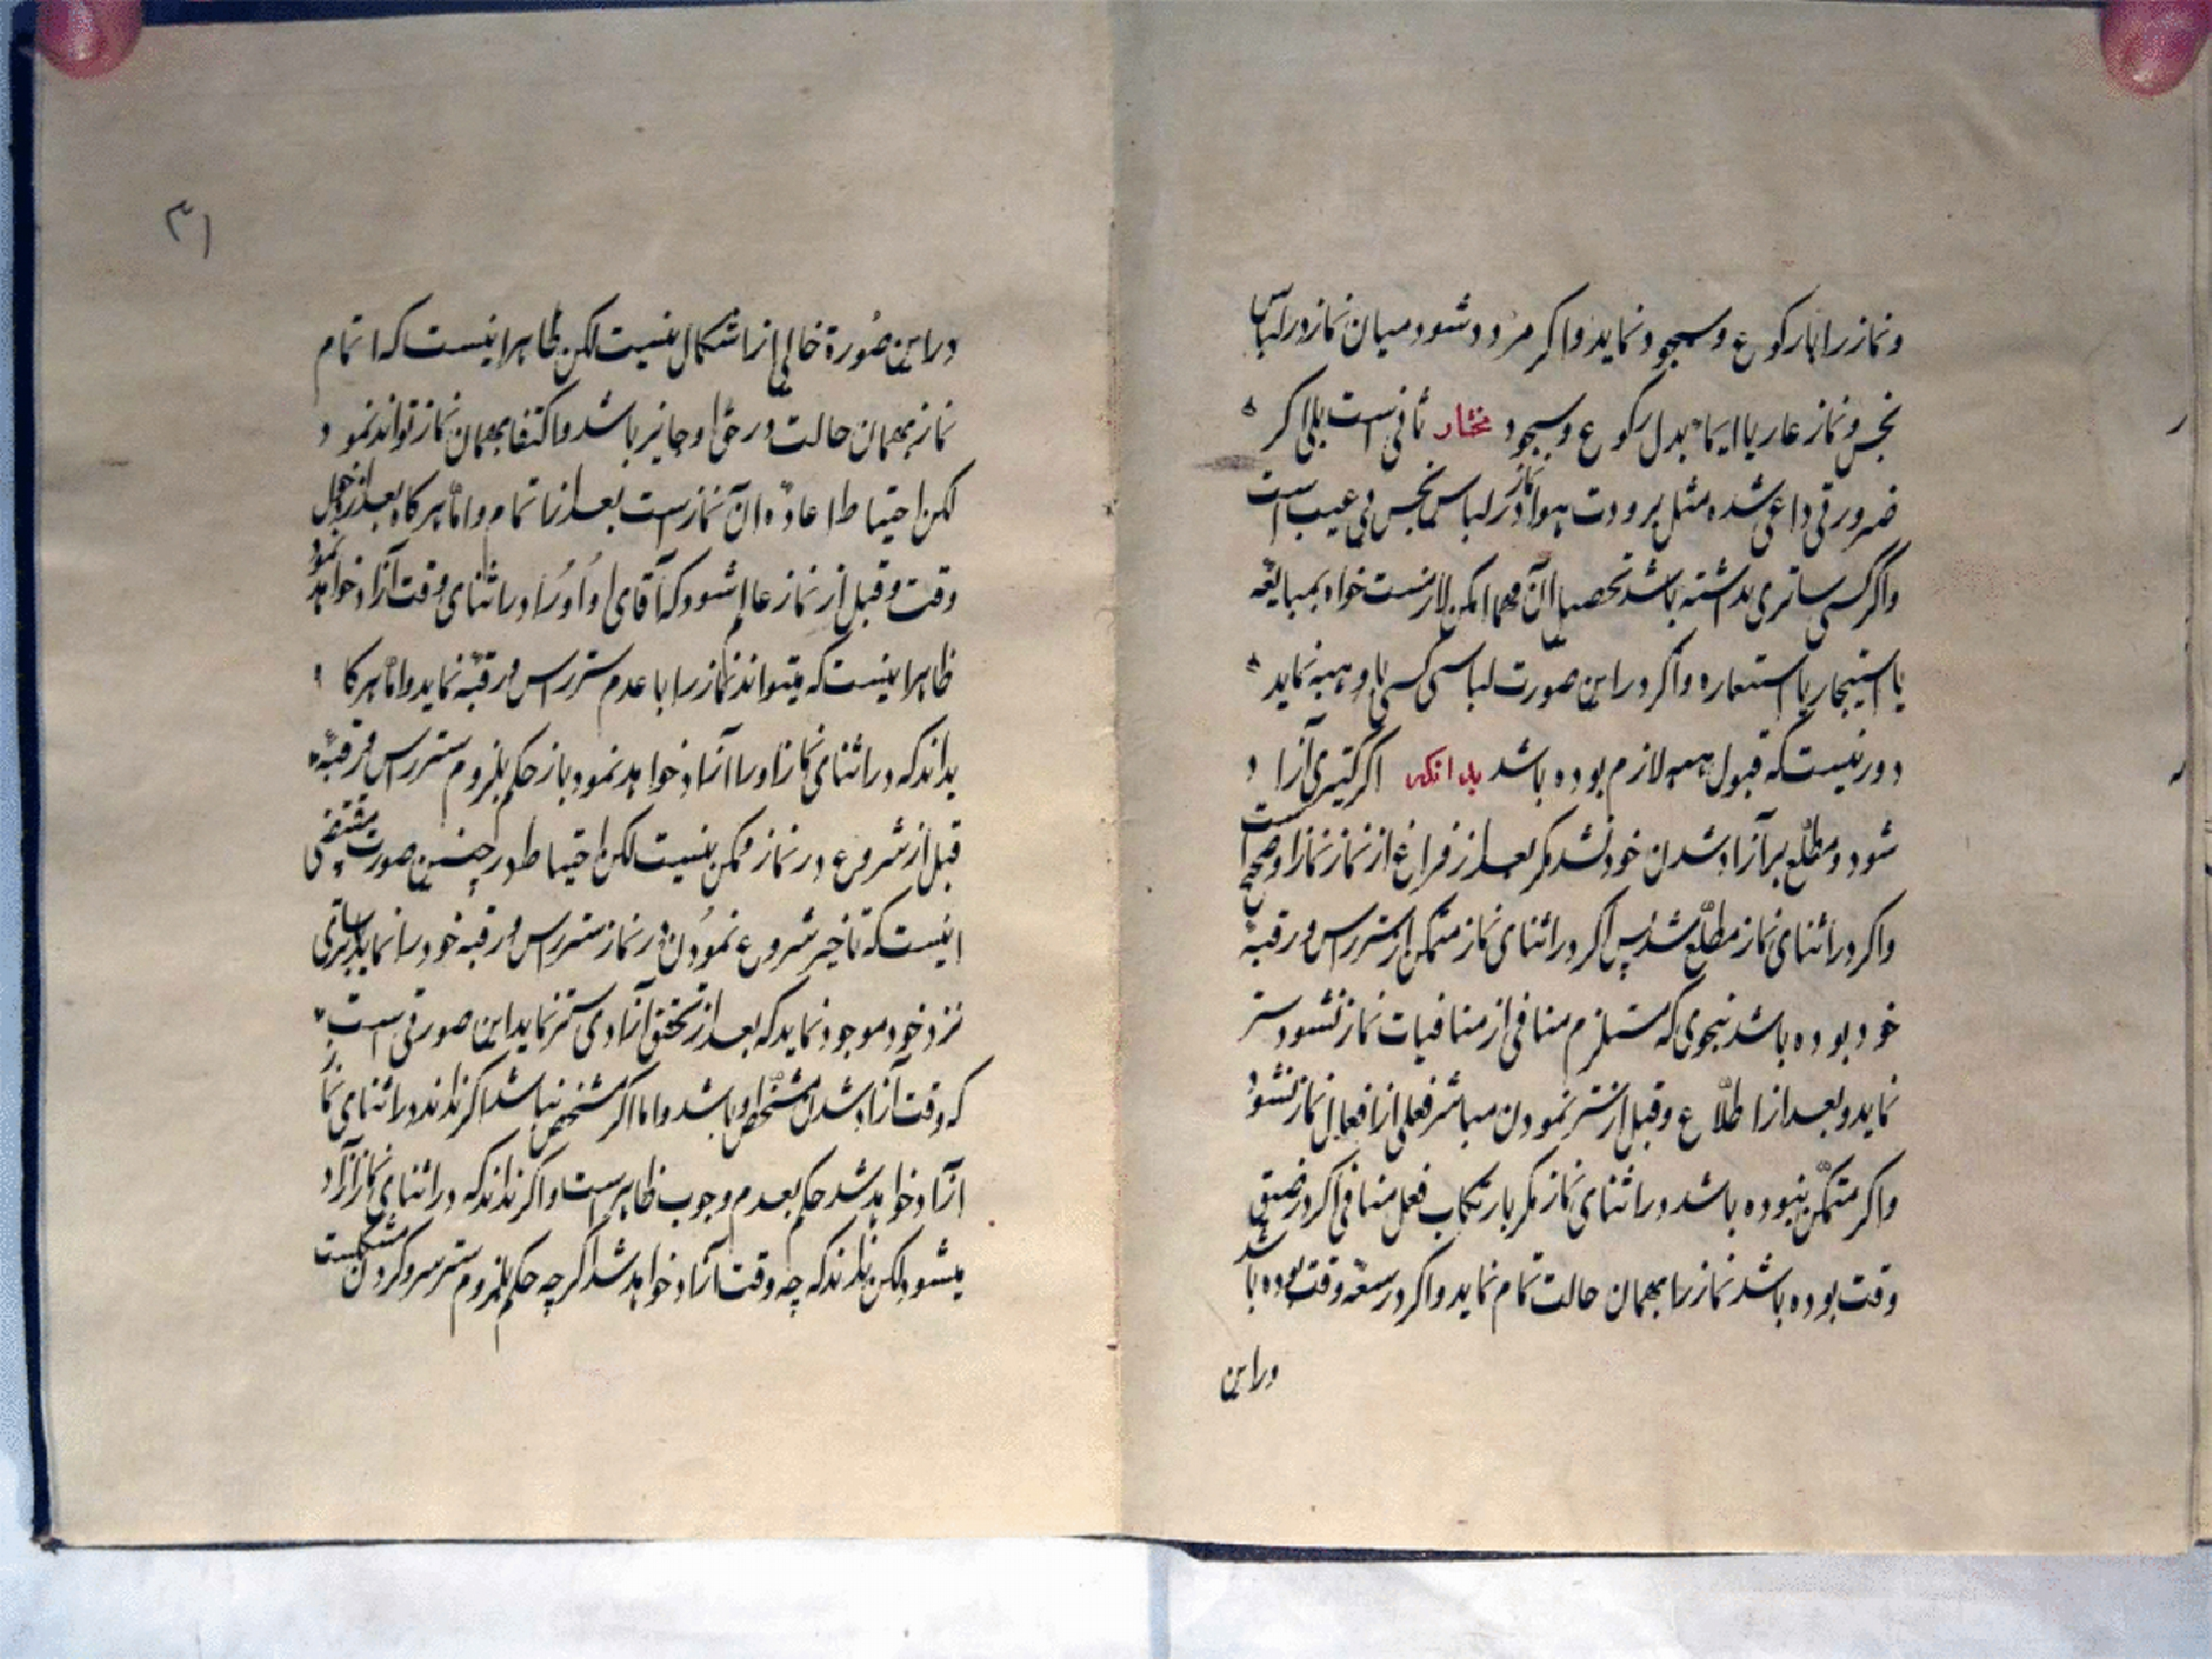 و نماز را با رکوع و سجود نماید و اگر مردد شود میان نماز در لباس
نجس و نماز عاریا ایماء بدل رکوع و سجود مختار ثانی است بلی اگر
ضرورتی داعی شده مثل برودت هوا نماز در لباس نجس بی عیب است
و اگر کسی ساتری نداشته باشد تحصیل آن مهما امکن لازمست خواه بمبایعه
یا استیجار یا استعاره و اگر در این صورت لباسی کسی باو هبه نماید
دور نیست که قبول هبه لازم بوده باشد بدانکه اگر کنیزی آزاد
شود و مطلع بر آزاد شدن خود نشد مگر بعد از فراغ از نماز نماز او صحیح است
و اگر در اثنای نماز مطلع شد پس اگر در اثنای نماز متمکن از ستر راس و رقبه
خود بوده باشد بنحوی که مستلزم منافی از منافیات نماز نشود ستر
نماید و بعد از اطلاع و قبل از ستر نمودن مباشر فعلی از افعال نماز نشود
و اگر متمکن نبوده باشد در اثنای نماز مگر بارتکاب فعل منافی اگر در ضیق
وقت بوده باشد نماز را بهمان حالت تمام نماید و اگر در سعة وقت بوده باشد
در این
۳۱
در این صورة خالی از اشکال نیست لکن ظاهر اینست که اتمام
نماز بهمان حالت در حق او جایز باشد و اکتفا بهمان نماز تواند نمود
لکن احتیاط اعاده آن نماز است بعد از اتمام و اما هرگاه بعد از دخول
وقت و قبل از نماز عالم شود که آقای او او را در اثنای وقت آزاد خواهد نمود
ظاهر اینست که میتواند نماز را با عدم ستر راس و رقبه نماید و اما هرگاه
بداند که در اثنای نماز او را آزاد خواهد نمود باز حکم بلزوم ستر راس و رقبه
قبل از شروع در نماز ممکن نیست لکن احتیاط در چنین صورت مقتضی
اینست که تاخیر شروع نمودن در نماز ستر راس و رقبه خود را نماید ساتری
نزد خود موجود نماید که بعد از تحقق آزادی ستر نماید این صورتی است
که وقت آزاد شدن مشخص او باشد و اما اگر مشخص نباشد اگر نداند در اثنای نماز
آزاد خواهد شد حکم بعدم وجوب ظاهر است و اگر نداند که در اثنای نماز آزاد
میشود لکن نداند که چه وقت آزاد خواهد شد اگر چه حکم بلزوم ستر سر و گردن مشکلست